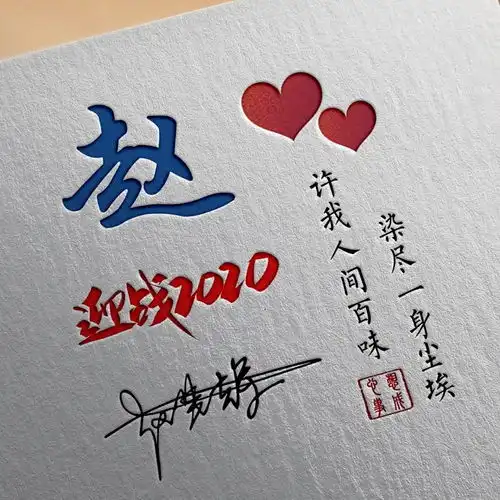 赵
迎战2020
染尽一身尘埃
许我人间百味
心想事成